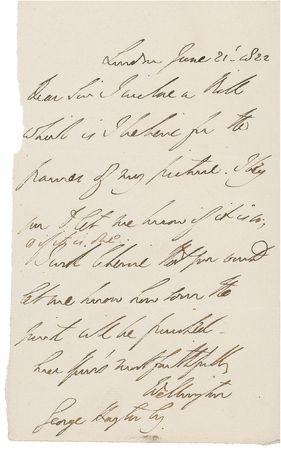 London June 21st 1822
Dear Sir I inclose a Bill
which is I believe for the
frames of my picture. I beg
you to let me know if it is so;
& if it is due
I wish likewise that you would
let me know how soon the
print will be finished.
Ever Yours most faithfully
Wellington
George Hayter Esq